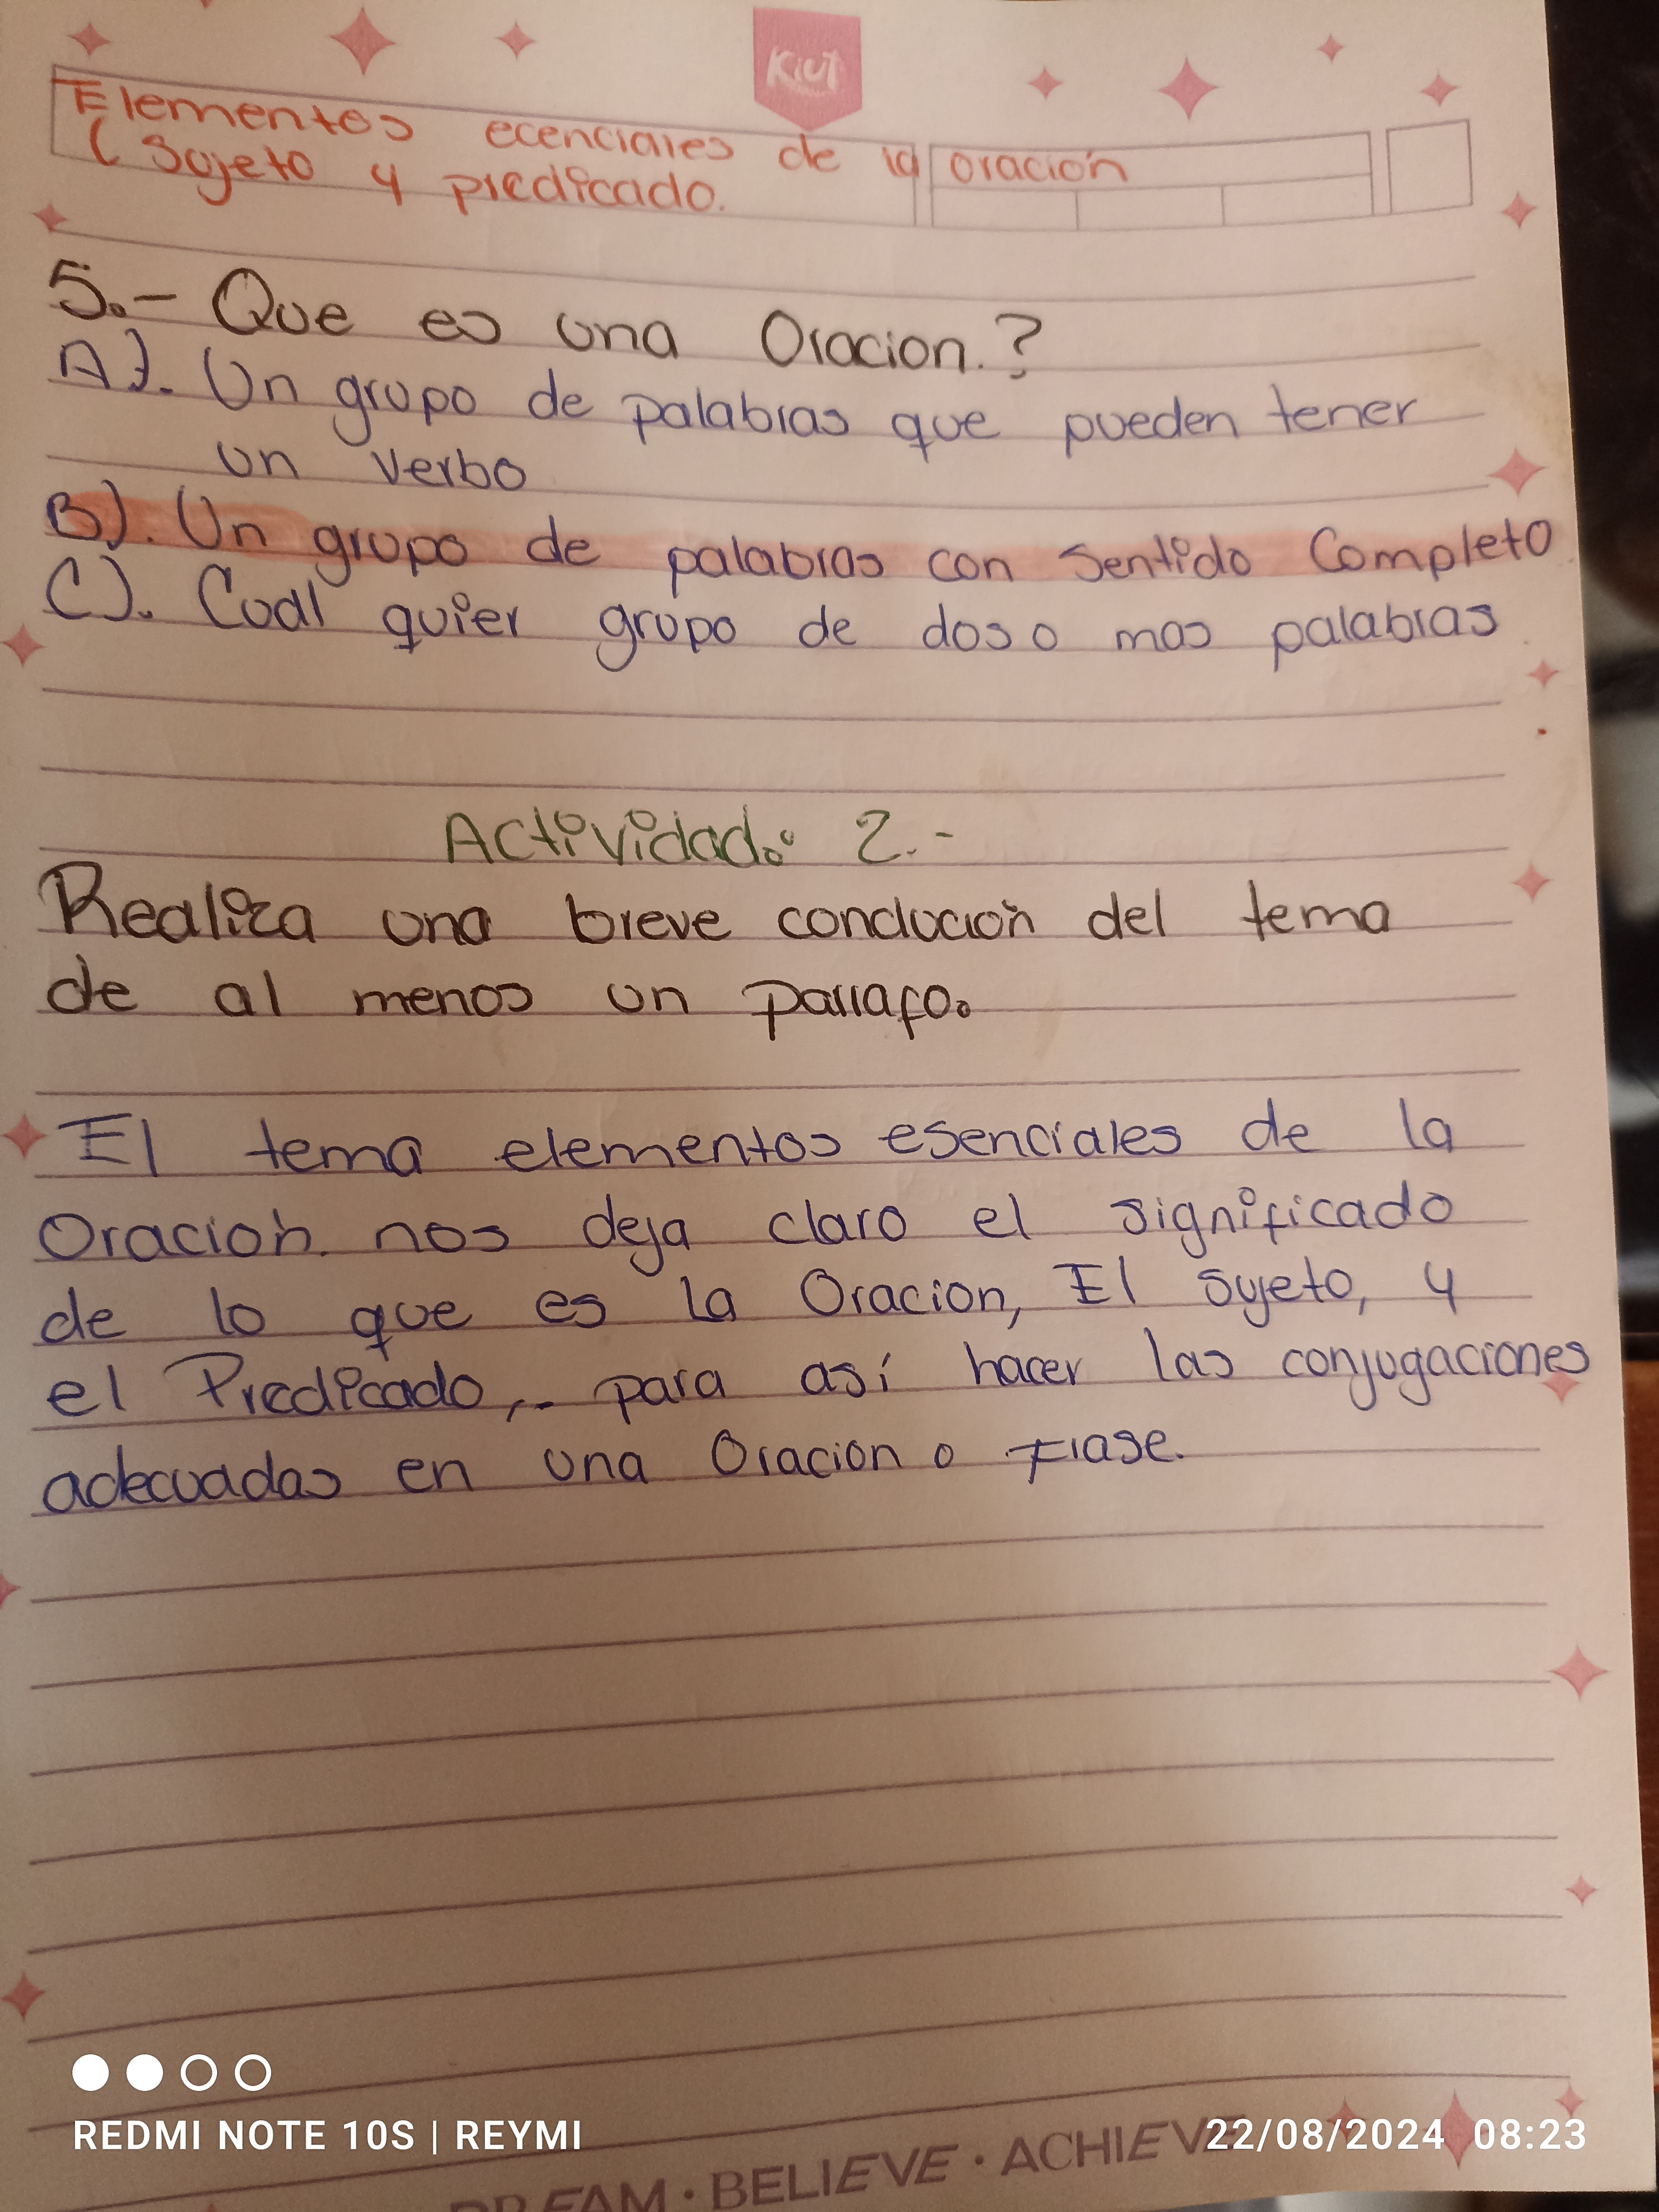 Kiut
Elementos ecenciales de la oración
( Sujeto y predicado.
5.- Que es una Oracion.?
A). Un grupo de palabras que pueden tener
un verbo
B). Un grupo de palabras con Sentido Completo
C). Cual quier grupo de dos o mas palabras
Actividad: 2.-
Realiza una breve conclución del tema
de al menos un parrafo.
El tema elementos esenciales de la
Oración. nos deja claro el significado
de lo que es la Oracion, El sujeto, y
el Predicado,.- para así hacer las conjugaciones
adecuadas en una Oracion o Frase.
REDMI NOTE 10S | REYMI
22/08/2024 08:23
DREAM · BELIEVE · ACHIEVE